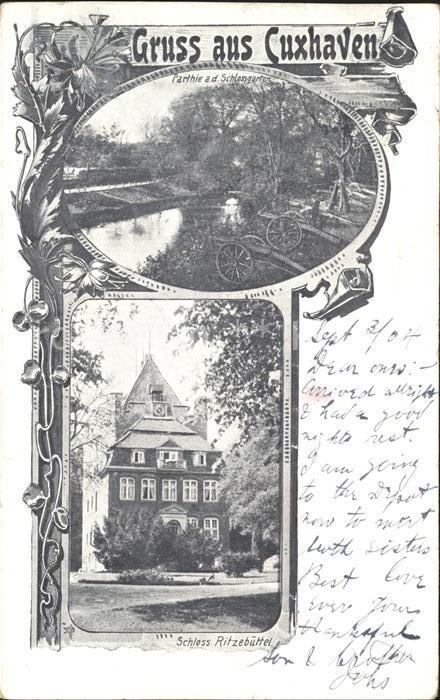 Gruss aus Cuxhaven
Parthie a.d. Schlossgarten
Sept 3/04
Dear ones:-
Arrived allright
& had a good
nights rest.
I am going
to the Depot
now to meet
both sisters
Best love
ever yours
thankful
Son & brother
Schloss Ritzebüttel